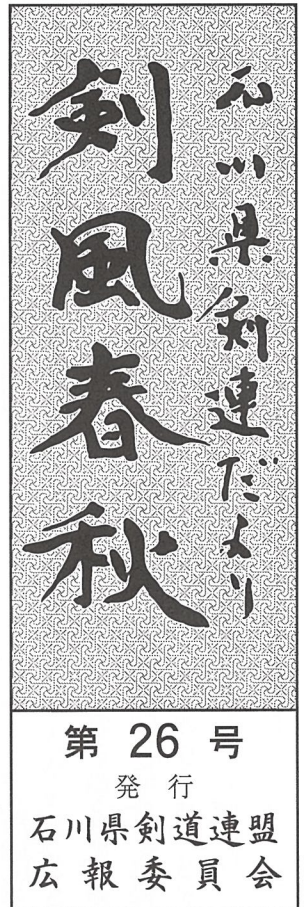 石川県剣連だより
剣風春秋
第 26 号
発 行
石川県剣道連盟
広報委員会